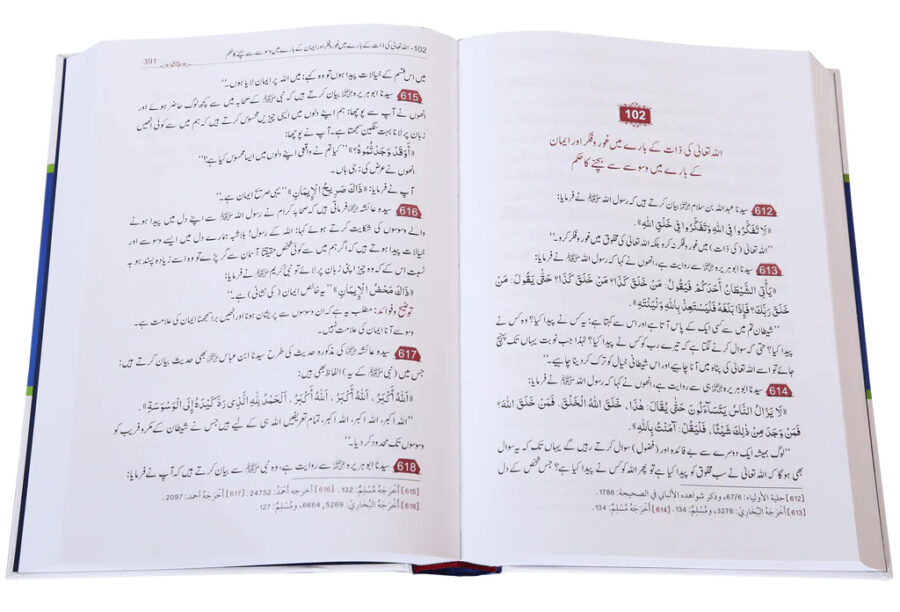 102
اللہ تعالیٰ کی ذات کے بارے میں غور و فکر اور ایمان
کے بارے میں وسوسے سے بچنے کا حکم
612 سیدنا عبداللہ بن سلام رضی اللہ عنہ بیان کرتے ہیں کہ رسول اللہ ﷺ نے فرمایا:
«لَا تَفَكَّرُوا فِي اللهِ وَتَفَكَّرُوا فِي خَلْقِ اللهِ»
’’اللہ تعالیٰ (کی ذات) میں غور و فکر نہ کرو بلکہ اللہ تعالیٰ کی مخلوق میں غور و فکر کرو۔‘‘
613 سیدنا ابو ہریرہ رضی اللہ عنہ سے روایت ہے، انھوں نے کہا کہ رسول اللہ ﷺ نے فرمایا:
«يَأْتِي الشَّيْطَانُ أَحَدَكُمْ فَيَقُولُ: مَنْ خَلَقَ كَذَا؟ مَنْ خَلَقَ كَذَا؟ حَتَّى يَقُولَ: مَنْ
خَلَقَ رَبَّكَ؟ فَإِذَا بَلَغَهُ فَلْيَسْتَعِذْ بِاللهِ وَلْيَنْتَهِ»
’’شیطان تم میں سے کسی ایک کے پاس آتا ہے اور اس سے کہتا ہے: یہ کس نے پیدا کیا؟ وہ کس نے
پیدا کیا؟ حتی کہ سوال کرنے لگتا ہے کہ تیرے رب کو کس نے پیدا کیا؟ لہٰذا جب نوبت یہاں تک پہنچ
جائے تو اسے اللہ تعالیٰ کی پناہ میں آنا چاہیے اور اس شیطانی خیال کو ترک کر دینا چاہیے۔‘‘
614 سیدنا ابو ہریرہ رضی اللہ عنہ ہی سے روایت ہے، انھوں نے کہا کہ رسول اللہ ﷺ نے فرمایا:
«لَا يَزَالُ النَّاسُ يَتَسَاءَلُونَ حَتَّى يُقَالَ: هٰذَا، خَلَقَ اللهُ الْخَلْقَ، فَمَنْ خَلَقَ اللهَ؟
فَمَنْ وَجَدَ مِنْ ذٰلِكَ شَيْئًا، فَلْيَقُلْ: آمَنْتُ بِاللهِ»
’’لوگ ہمیشہ ایک دوسرے سے بے فائدہ اور (فضول) سوال کرتے رہیں گے یہاں تک کہ یہ سوال
بھی ہوگا کہ اللہ تعالیٰ نے سب مخلوق کو پیدا کیا ہے تو پھر اللہ کو کس نے پیدا کیا ہے؟ جس شخص کے دل
[612] حلية الأولياء: 67/6، وذكر شواهده الألباني في الصحيحة: 1788.
[613] أَخْرَجَهُ الْبُخَارِيُّ: 3276، وَمُسْلِمٌ: 134. [614] أَخْرَجَهُ مُسْلِمٌ: 134.
102- اللہ تعالیٰ کی ذات کے بارے میں غور و فکر اور ایمان کے بارے میں وسوسے سے بچنے کا حکم
391
میں اس قسم کے خیالات پیدا ہوں تو وہ کہے: میں اللہ پر ایمان لایا ہوں۔‘‘
615 سیدنا ابو ہریرہ رضی اللہ عنہ بیان کرتے ہیں کہ نبی ﷺ کے صحابہ میں سے کچھ لوگ حاضر ہوئے اور
انھوں نے آپ سے پوچھا: ہم اپنے دلوں میں ایسی چیزیں محسوس کرتے ہیں کہ ہم میں سے کوئی انھیں
زبان پر لانا بہت سنگین سمجھتا ہے۔ آپ نے پوچھا:
«أَوَقَدْ وَجَدْتُمُوهُ؟» ’’کیا تم نے واقعی اپنے دلوں میں ایسا محسوس کیا ہے؟‘‘
انھوں نے عرض کی: جی ہاں۔
آپ نے فرمایا: «ذَاكَ صَرِيحُ الْإِيمَانِ» ’’یہی صریح ایمان ہے۔‘‘
616 سیدہ عائشہ رضی اللہ عنہا فرماتی ہیں کہ صحابہ کرام نے رسول اللہ ﷺ سے اپنے دل میں پیدا ہونے
والے وسوسوں کی شکایت کرتے ہوئے کہا: اللہ کے رسول! بلاشبہ ہمارے دل میں ایسے وسوسے اور
خیالات پیدا ہوتے ہیں کہ اگر ہم میں سے کوئی شخص حقیقتاً آسمان سے گر پڑے تو وہ اسے زیادہ پسند ہو بہ
نسبت اس کے کہ وہ چیز اپنی زبان پر لائے تو نبی کریم ﷺ نے فرمایا:
«ذَاكَ مَحْضُ الْإِيمَانِ» ’’یہ خالص ایمان (کی نشانی) ہے۔‘‘
توضیح و فوائد: مطلب یہ ہے کہ ان وسوسوں سے پریشان ہونا اور انھیں برا سمجھنا ایمان کی علامت ہے۔
وسوسے آنا ایمان کی علامت نہیں۔
617 سیدہ عائشہ رضی اللہ عنہا کی مذکورہ حدیث کی طرح سیدنا ابن عباس رضی اللہ عنہما بھی حدیث بیان کرتے ہیں:
جس میں (نبی ﷺ کے یہ) الفاظ بھی ہیں:
«اَللهُ أَكْبَرُ، اَللهُ أَكْبَرُ، اَللهُ أَكْبَرُ، اَلْحَمْدُ لِلّٰهِ الَّذِي رَدَّ كَيْدَهُ إِلَى الْوَسْوَسَةِ».
’’اللہ اکبر، اللہ اکبر، اللہ اکبر، تمام تعریفیں اللہ ہی کے لیے ہیں جس نے شیطان کے مکر و فریب کو
وسوسوں تک محدود کر دیا۔‘‘
618 سیدنا ابو ہریرہ رضی اللہ عنہ سے روایت ہے، وہ نبی ﷺ سے بیان کرتے ہیں کہ آپ نے فرمایا:
[615] أَخْرَجَهُ مُسْلِمٌ: 132. [616] أخرجه أحمد: 24752. [617] أَخْرَجَهُ أحمد: 2097.
[618] أَخْرَجَهُ الْبُخَارِيُّ: 5269, 6664، وَمُسْلِمٌ: 127.